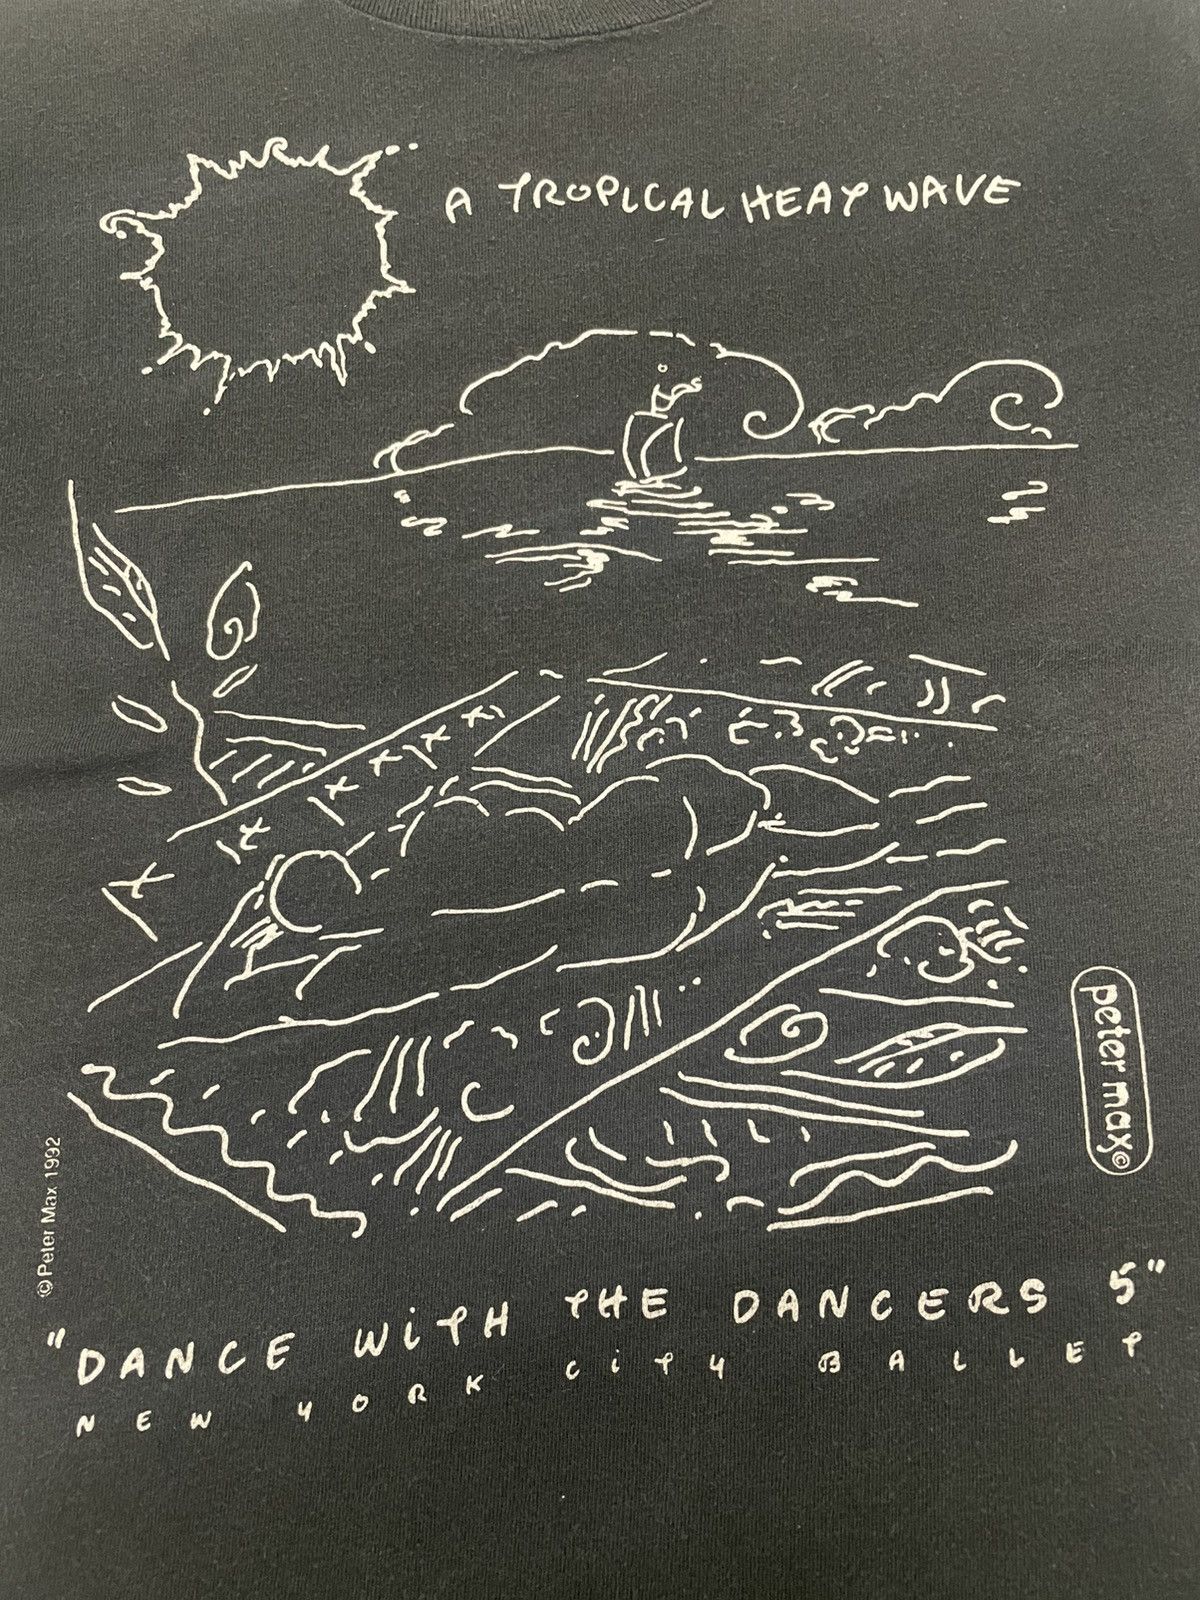 A TROPICAL HEAT WAVE
peter max©
© Peter Max 1992
"DANCE WiTH THE DANCERS 5"
NEW YORK CiTY BALLET